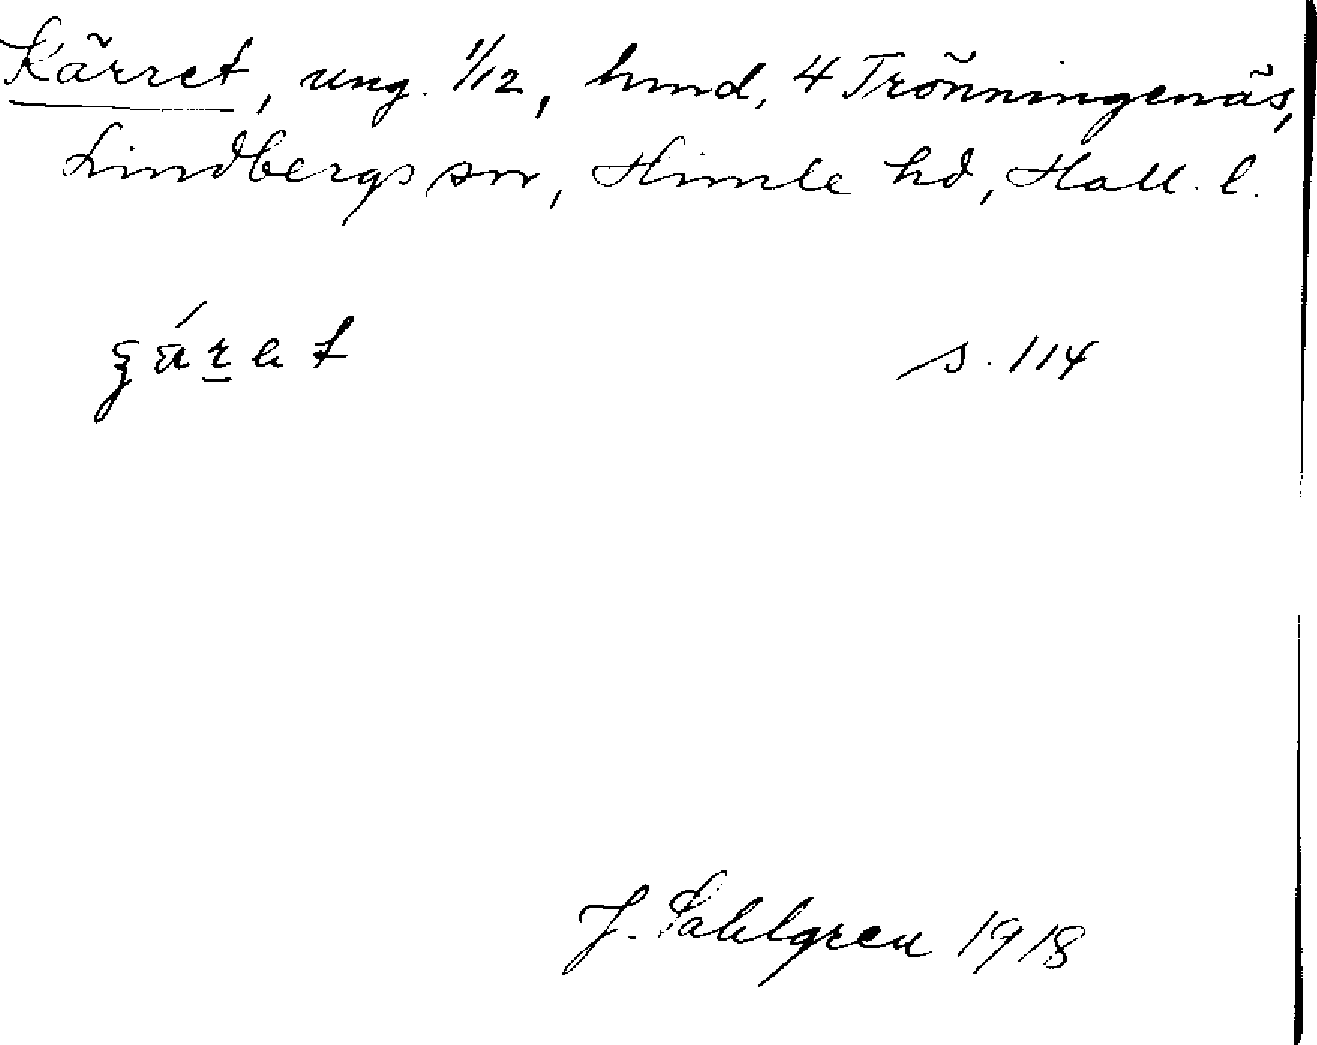 Kärret, ung. 1/12, hmd, 4 Trönningenäs,
Lindbergs sn, Himle hd, Hall. l.
s. 114
J. Sahlgren 1918